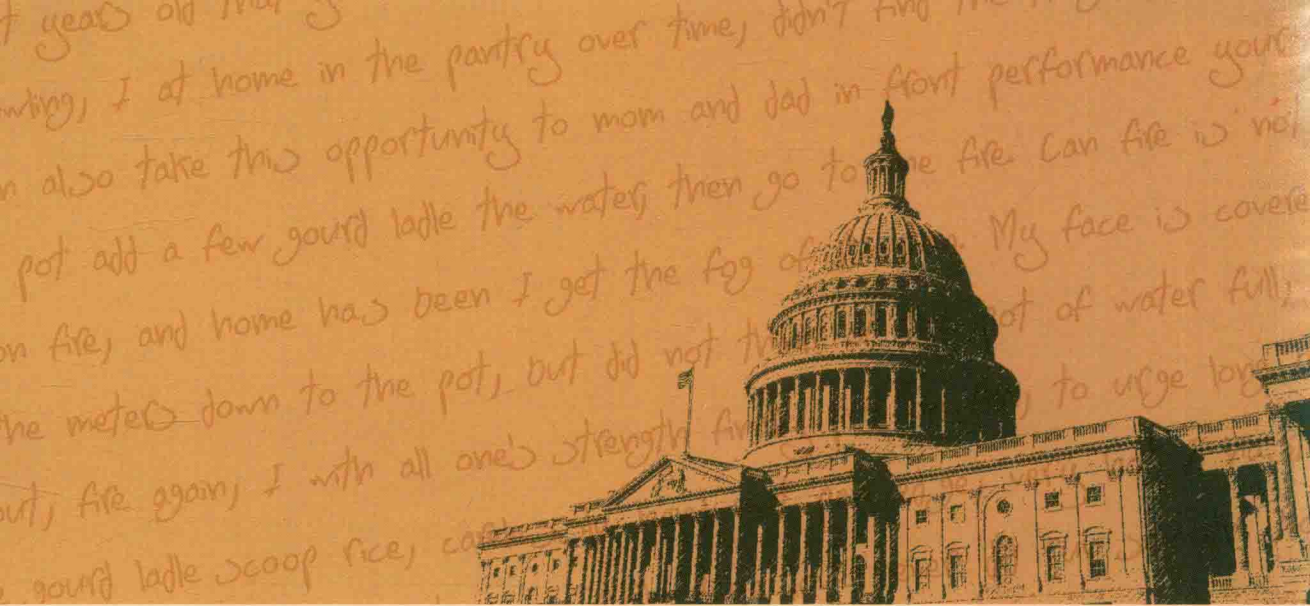 years old that
I at home in the pantry over time, didn't find the
also take this opportunity to mom and dad in front performance your
pot add a few gourd ladle the water, then go to fire. Can fire is not
on fire, and home has been I get the fog of My face is covere
the meters down to the pot, but did not pot of water full,
out, fire again, I with all one's strength to urge long
gourd ladle scoop rice,